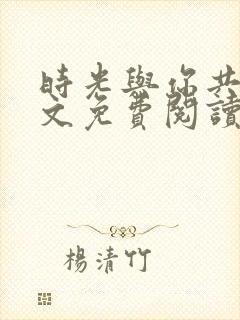 時光與你共
文免費閱讀
楊清竹